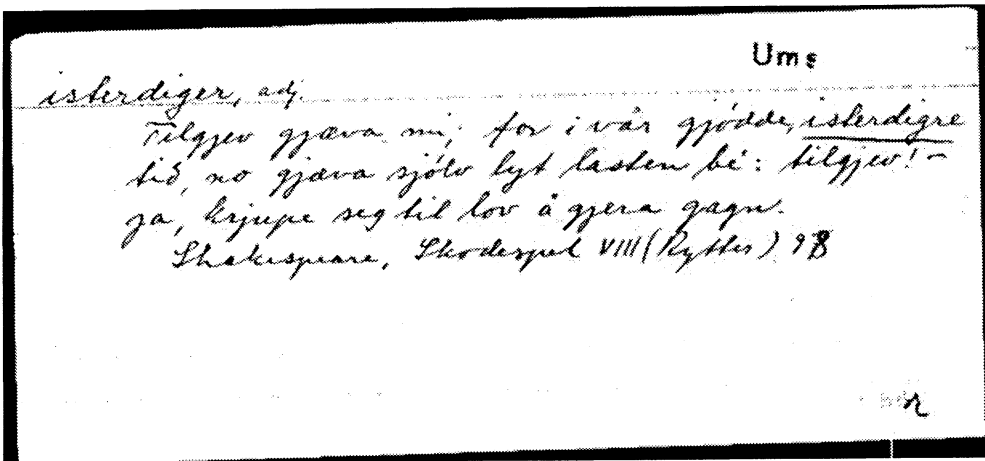 Ums
isterdiger, adj.
Tilgjev gjæva mi; for i vår gjødde, isterdigre
tid, no gjæva sjølv lyt lasten bé: tilgjev! –
ja, krjupe seg til lov å gjera gagn.
Shakespeare, Skodespel VIII (Rytter) 98